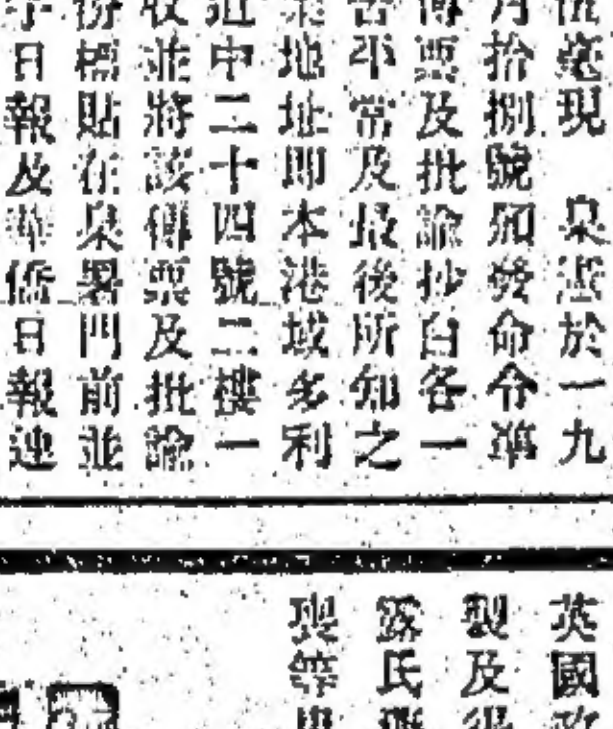 伍毫現　臬憲於一九
月拾捌號頒發命令準
傳票及批諭抄白各一
告平常及最後所知之
業地址即本港域多利
近中二十四號二樓一
收並將該傳票及批諭
份標貼在臬署門前並
字日報及華僑日報連
英國政
製及
露氏
與等